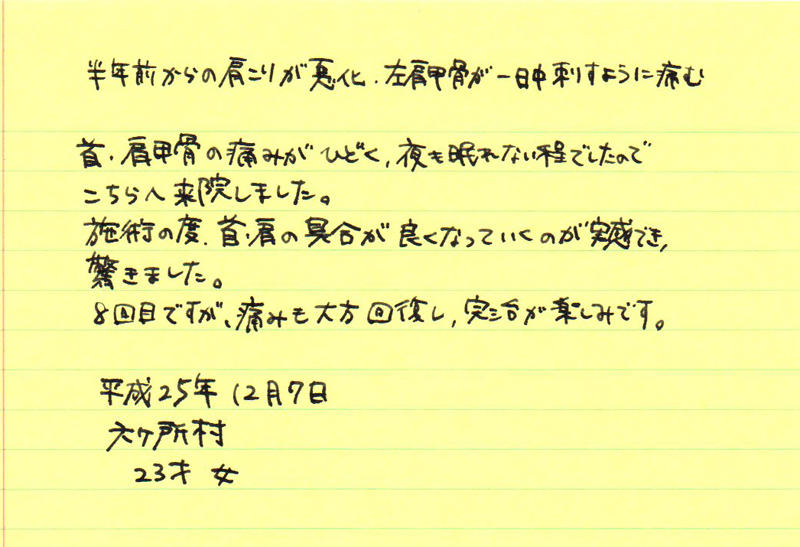 半年前からの肩こりが悪化.左肩甲骨が一日中刺すように痛む
首.肩甲骨の痛みがひどく,夜も眠れない程でしたので
こちらへ来院しました。
施術の度.首.肩の具合が良くなっていくのが実感でき,
驚きました。
8回目ですが、痛みも大方回復し,完治が楽しみです。
平成25年12月7日
六ヶ所村
23才 女